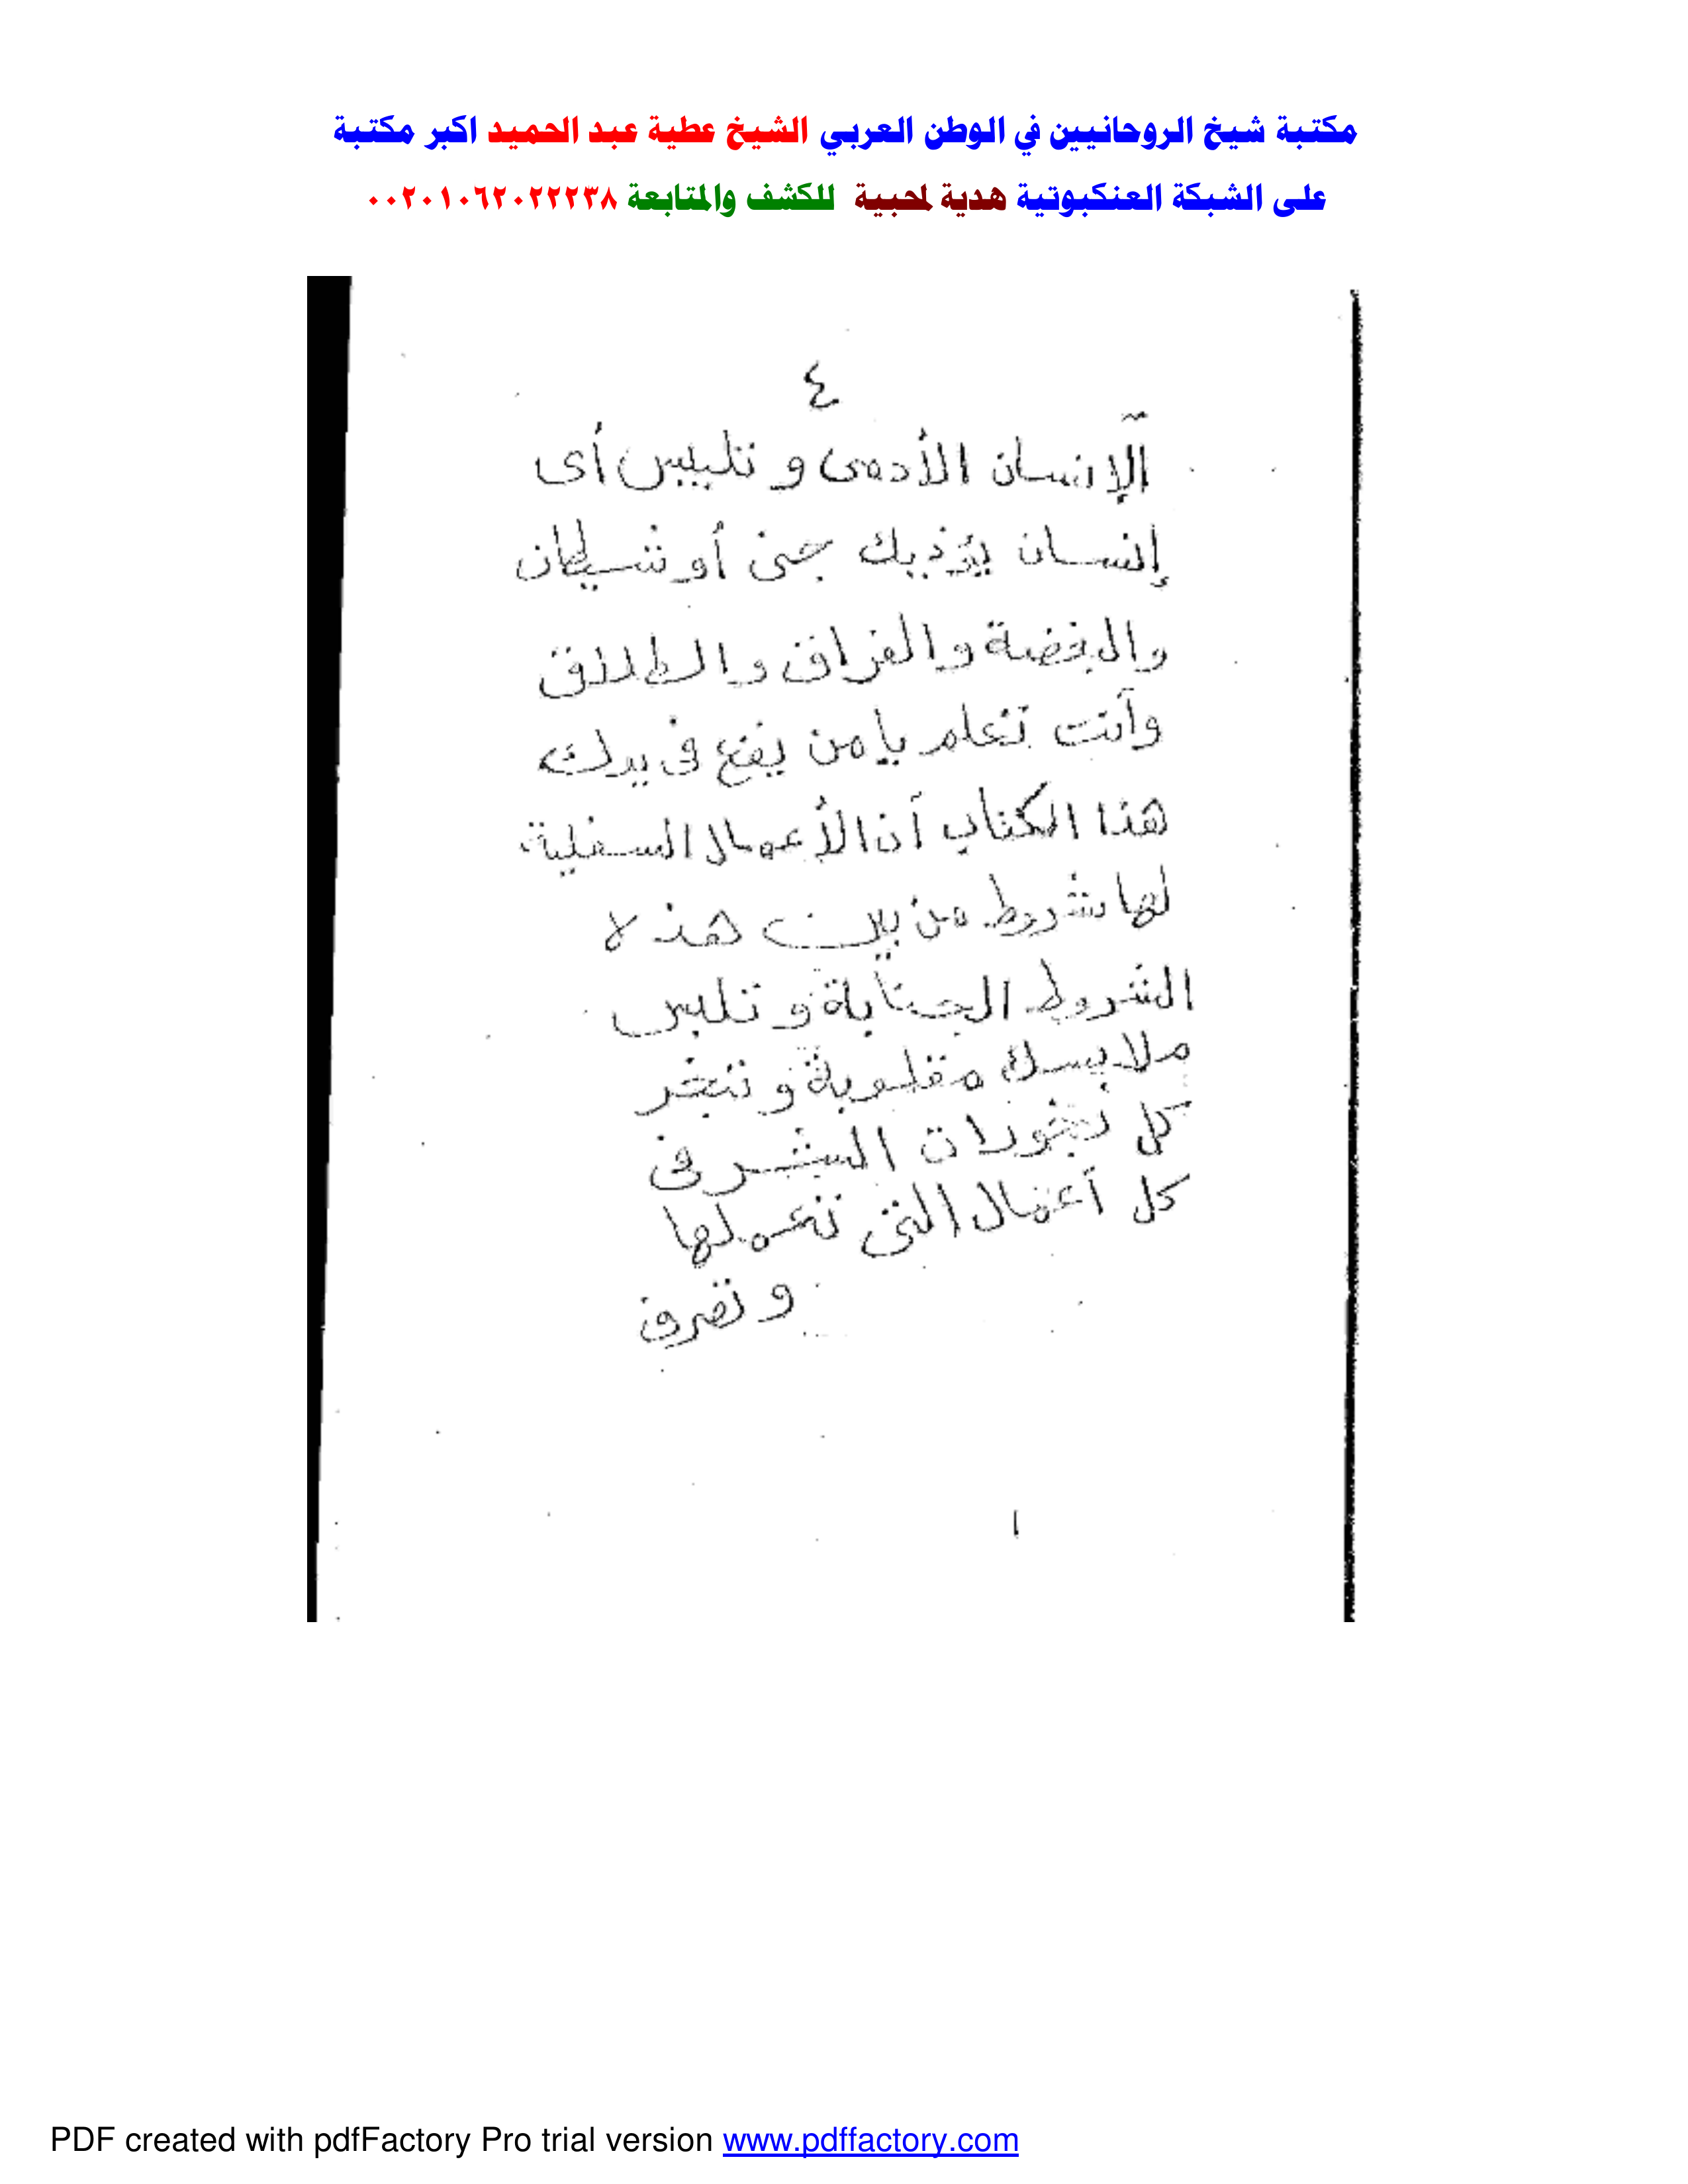 مكتبة شيخ الروحانيين في الوطن العربي الشيخ عطية عبد الحميد اكبر مكتبة
على الشبكة العنكبوتية هدية لمحبية للكشف والمتابعة ٠٠٢٠١٠٦٢٠٢٢٢٣٨
٤
الإنسان الأدمى و تلبيس أى
إنسان يؤذيك جنى أو شيطان
والبغضة والفراق والطلاق
وأنت تعلم يا من يقع فى يدك
هذا الكتاب أن الأعمال السفلية
لها شروط من بين هذه
الشروط الجنابة و تلبس
ملابسك مقلوبة و تبخر
كل بخورات الشر فى
كل أعمال التى تعملها
و تصرف
PDF created with pdfFactory Pro trial version www.pdffactory.com